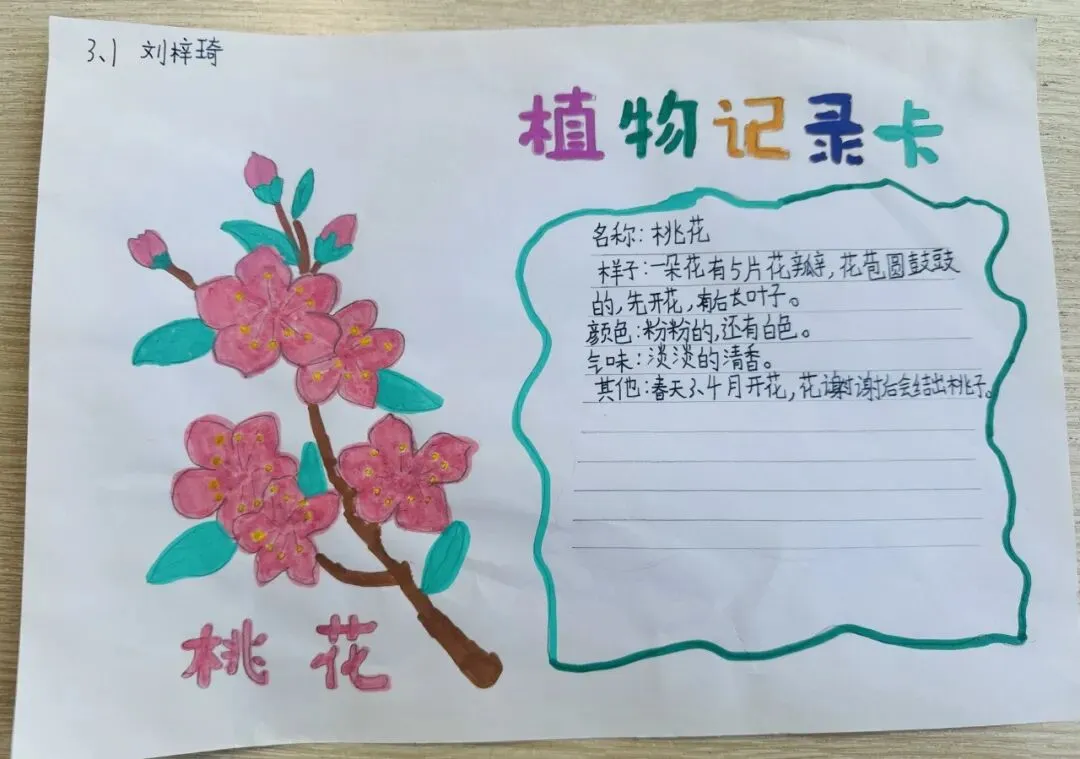 3.1 刘梓琦
植物记录卡
名称：桃花
样子：一朵花有5片花瓣，花苞圆鼓鼓
的，先开花，有后长叶子。
颜色：粉粉的，还有白色。
气味：淡淡的清香。
其他：春天3、4月开花，花谢谢后会结出桃子。
桃花